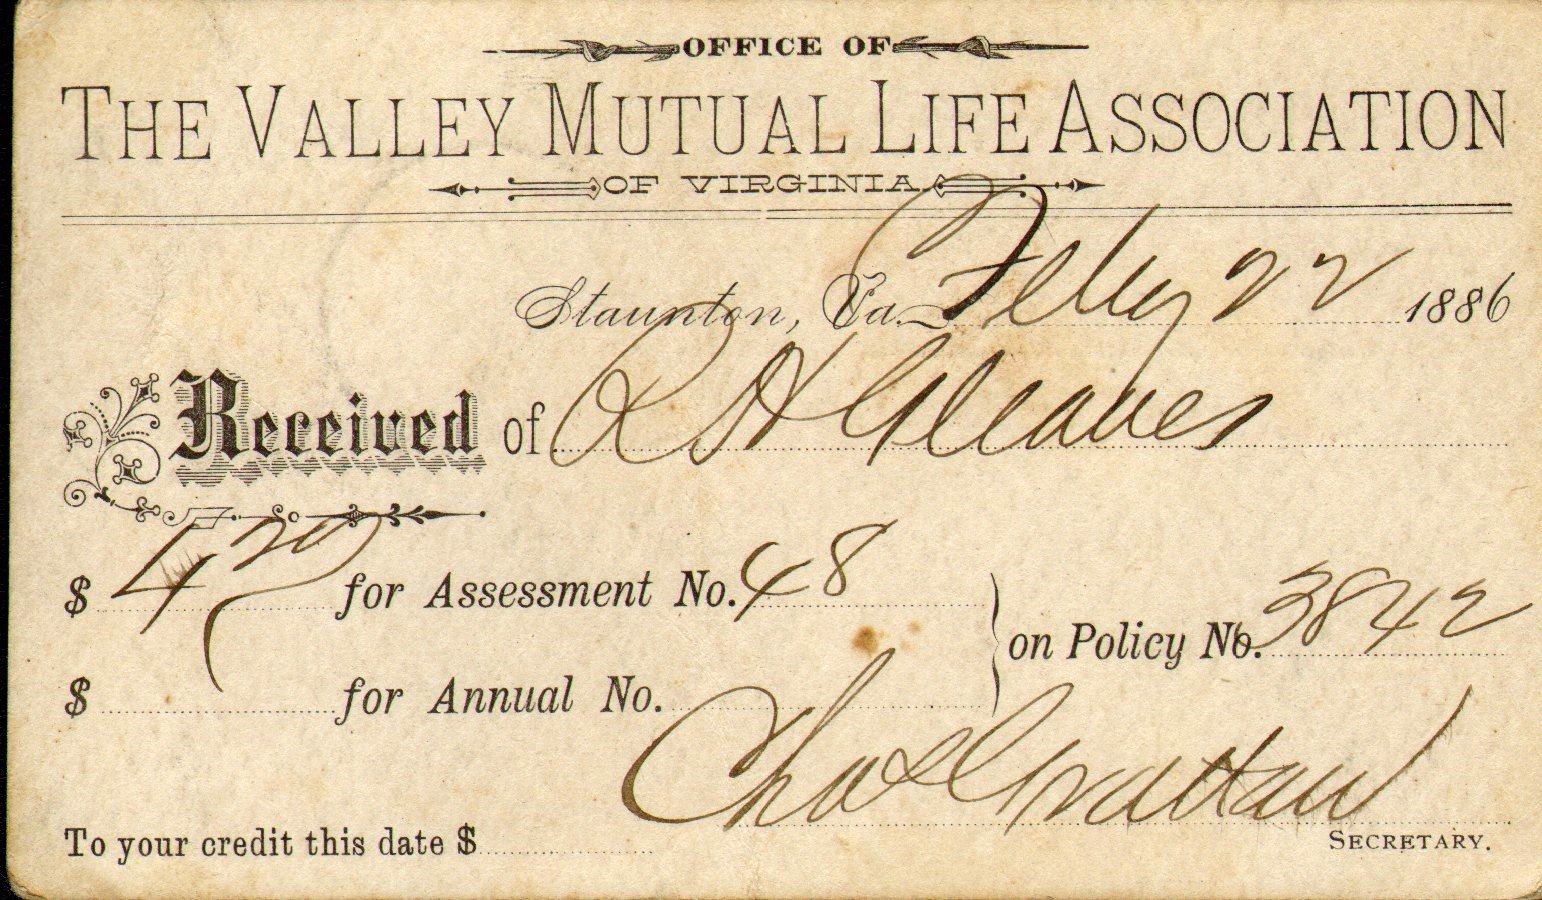 OFFICE OF
THE VALLEY MUTUAL LIFE ASSOCIATION
OF VIRGINIA
Staunton, Va. Feby 22 1886
Received of R H Gleaves
$ 4 20 for Assessment No. 48
on Policy No. 3842
$ for Annual No.
Chas Grattan
To your credit this date $
SECRETARY.